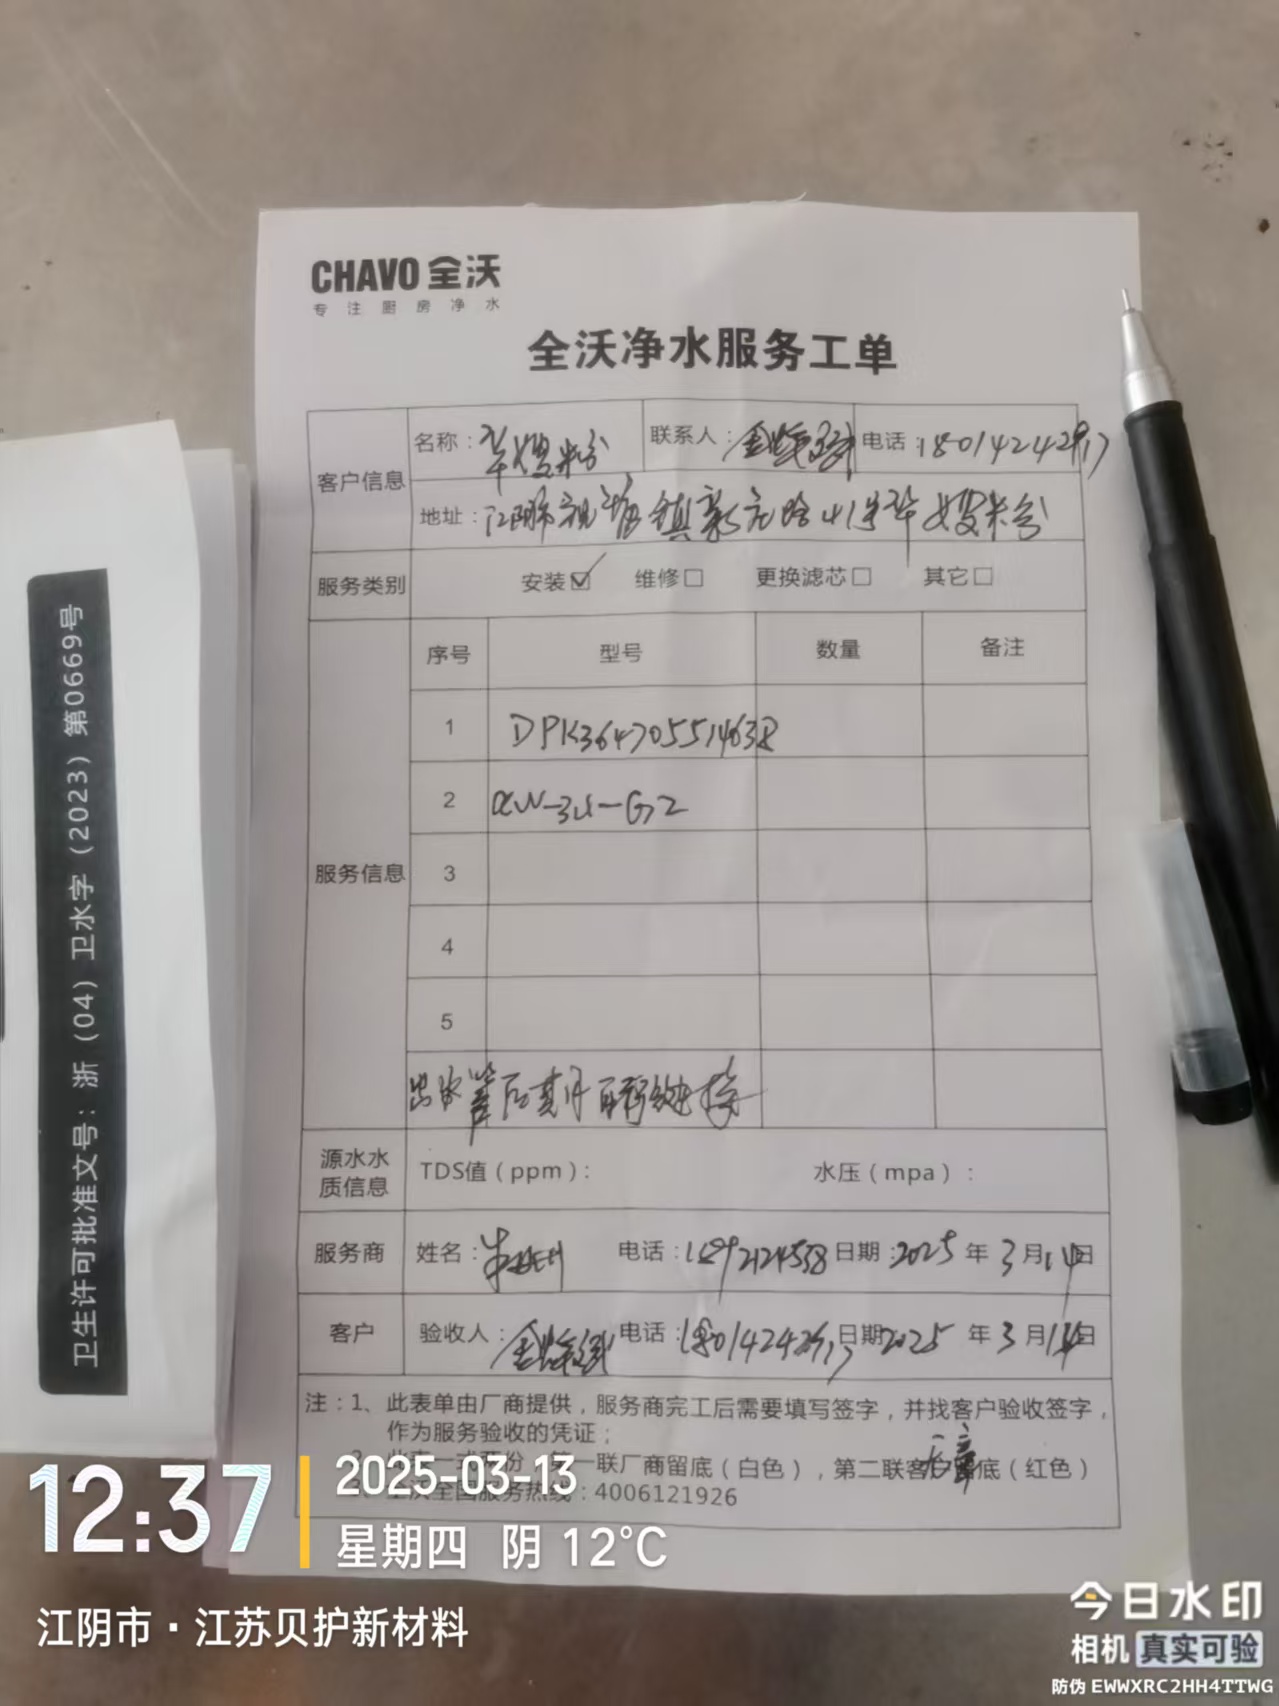 CHAVO 全沃
专注厨房净水
全沃净水服务工单
客户信息 名称：华嫂米粉 联系人：金 电话：18014242917
地址：江阴市祝塘镇新 41号华嫂米分
服务类别 安装☑ 维修□ 更换滤芯□ 其它□
服务信息 序号 型号 数量 备注
1 DPK364705514638
2 -3U-G2
3
4
5
出水管后期自行
源水水质信息 TDS值（ppm）： 水压（mpa）：
服务商 姓名：朱 电话： 日期：2025年3月14日
客户 验收人：金 电话：18014242917 日期2025年3月14日
注：1、此表单由厂商提供，服务商完工后需要填写签字，并找客户验收签字，
作为服务验收的凭证；
2、此表一式两份，第一联厂商留底（白色），第二联客户留底（红色）
3、全沃全国服务热线：4006121926
卫生许可批准文号：浙（04）卫水字（2023）第0669号
12:37
2025-03-13
星期四 阴 12℃
江阴市·江苏贝护新材料
今日水印
相机 真实可验
防伪 EWWXRC2HH4TTWG